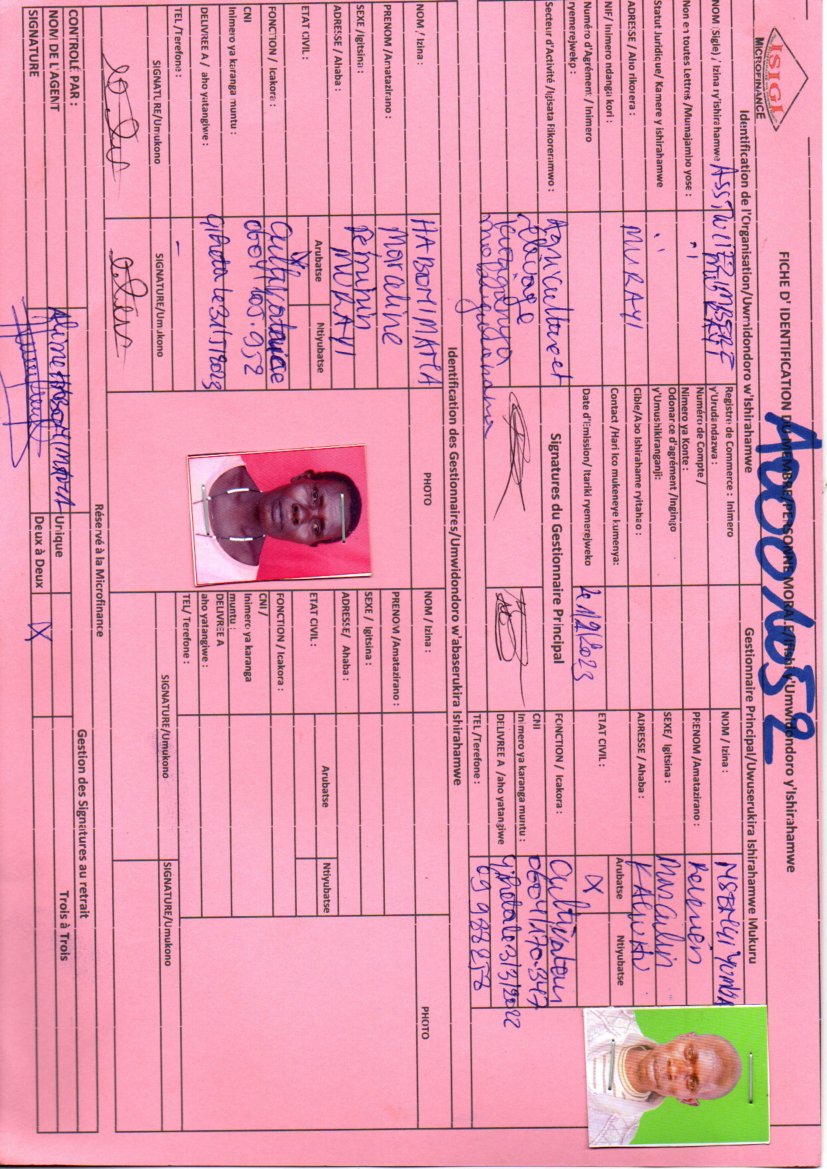 ISIGI
MICROFINANCE
FICHE D' IDENTIFICATION DU MEMBRE/PERSONNE MORALE/Irishi y'Umwidondoro y'Ishirahamwe
A00 1052
Identification de l'Organisation/Uwmidondoro w'Ishirahamwe
Gestionnaire Principal/Uwuserukira Ishirahamwe Mukuru
NOM (Sigle) / Izina ry'ishirahamwe
Non en toutes Lettres /Mumajambo yose :
Statut Juridique/ Kamere y ishirahamwe
ADRESSE / Aho rikorera : MURAYI
NIF/ Inimero ndanga kori :
Numéro d'Agrément / Inimero
ryemerejweko :
Secteur d'Activité /Igisata Rikoreramwo : Agriculture et
élévage
Registre de Commerce : Inimero
y'Urudandazwa :
Numéro de Compte /
Nimero ya Konte :
Odonance d'agrément /Ingingo
y'Umushikiranganji:
Cible/Abo Ishirahame ryitaho :
Contact /Hari ico mukeneye kumenya:
Date d'Emission/ Itariki ryemerejweko Le 1/9/2023
Signatures du Gestionnaire Principal
NOM / Izina : NSENGIYUMVA
PRENOM /Amatazirano :
SEXE/ Igitsina : Masculin
ADRESSE / Ahaba :
ETAT CIVIL : Arubatse Ntiyubatse
X
FONCTION / Icakora : Cultivateur
CNI
Inimero ya karanga muntu : 0604/170.347
DELIVREE A /aho yatangiwe Giheta le 3/3/2022
TEL /Terefone : 69 988258
Identification des Gestionnaires/Umwidondoro w'abaserukira Ishirahamwe
NOM / Izina : HABONIMANA
PRENOM /Amatazirano : Moraline
SEXE /Igitsina : Féminin
ADRESSE / Ahaba : MURAYI
ETAT CIVIL : Arubatse Ntiyubatse
X
FONCTION / Icakora : Cultivatrice
CNI
Inimero ya karanga muntu : 0604/165.952
DELIVREE A / aho yatangiwe : Giheta le 31/5/2023
TEL /Terefone : -
SIGNATURE/Umukono SIGNATURE/Umukono
PHOTO
NOM / Izina :
PRENOM /Amatazirano :
SEXE / Igitsina :
ADRESSE/ Ahaba :
ETAT CIVIL : Arubatse Ntiyubatse
FONCTION / Icakora :
CNI /
Inimero ya karanga
muntu :
DELIVREE A
aho yatangiwe :
TEL/ Terefone :
SIGNATURE/Umukono SIGNATURE/Umukono
PHOTO
Réservé à la Microfinance
CONTROLE PAR :
NOM DE L'AGENT Aline HABONIMANA
SIGNATURE
Gestion des Signatures au retrait
Unique
Deux à Deux X
Trois à Trois